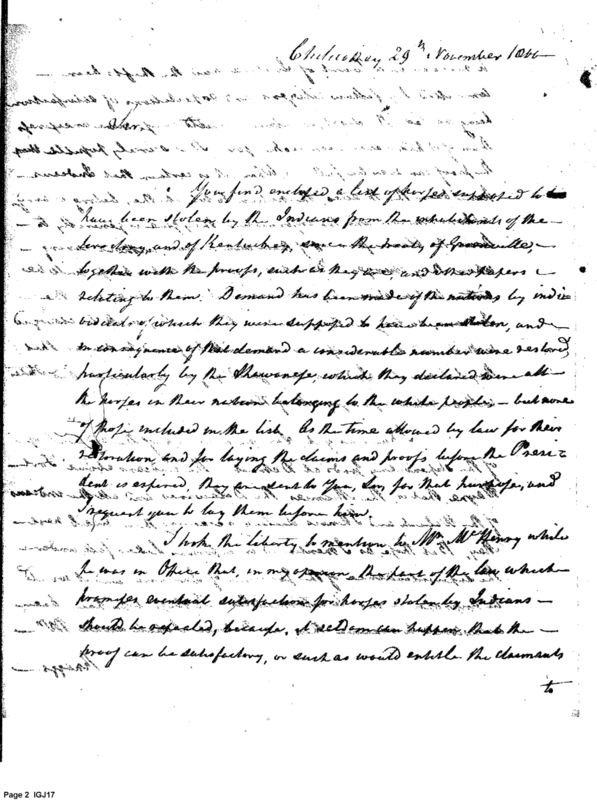 29th November 1800
Sir,
You find enclosed a list of horses supposed to
have been stolen by the Indians from the inhabitants of the
Territory, and of Kentuckey, since the treaty of Greenville,
together with the proofs, such as they are and other papers
relating to them. Demand has been made of the nations by indi=
viduals of which they were supposed to have been stolen, and
in consequence of that demand a considerable number were restored,
particularly by the Shawanese, which they declared were all
the horses in their nation belonging to the white people, – but none
of those included in the list. As the time allowed by law for their
restoration, and for laying the claims and proofs before the Presi=
dent is expired, they are sent to You, Sir, for that purpose, and
I request you to lay them before him.
I took the liberty to mention to Mr. McHenry while
he was in Office that, in my opinion the part of the law which
promises eventual satisfaction for horses stolen by Indians
should be repealed, because, it seldom can happen that the
proof can be satisfactory, or such as would entitle the claimants
to
Page 2 IGJ17